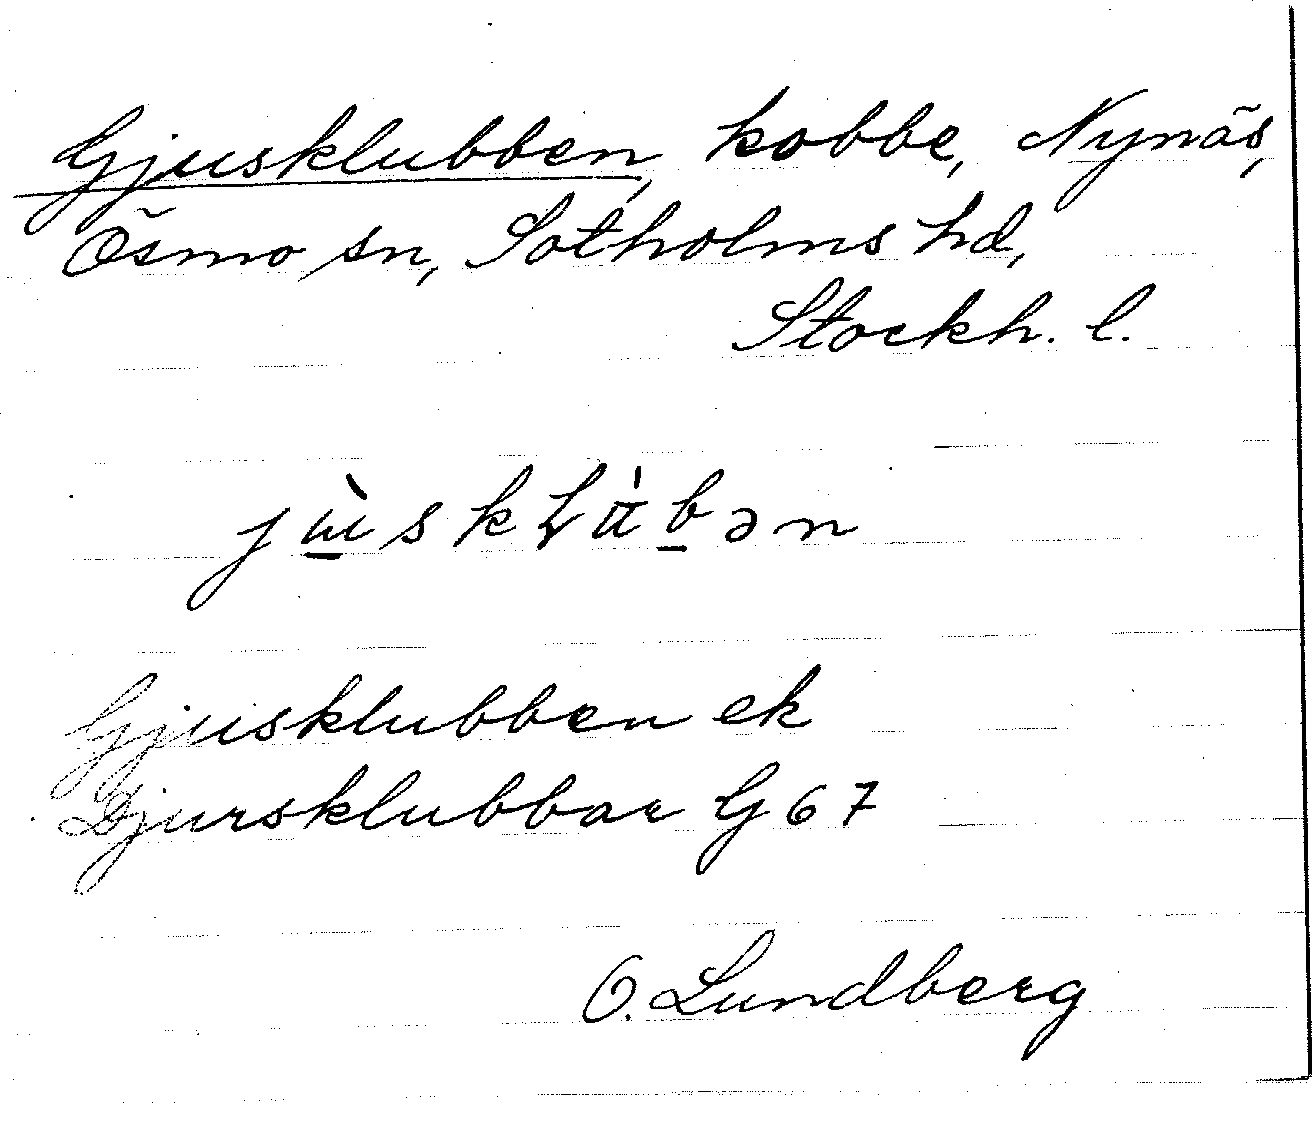 Gjusklubben, kobbe, Nynäs,
Ösmo sn, Sotholms hd,
Stockh. l.
Gjusklubben ek
Djursklubbar G 67
O. Lundberg